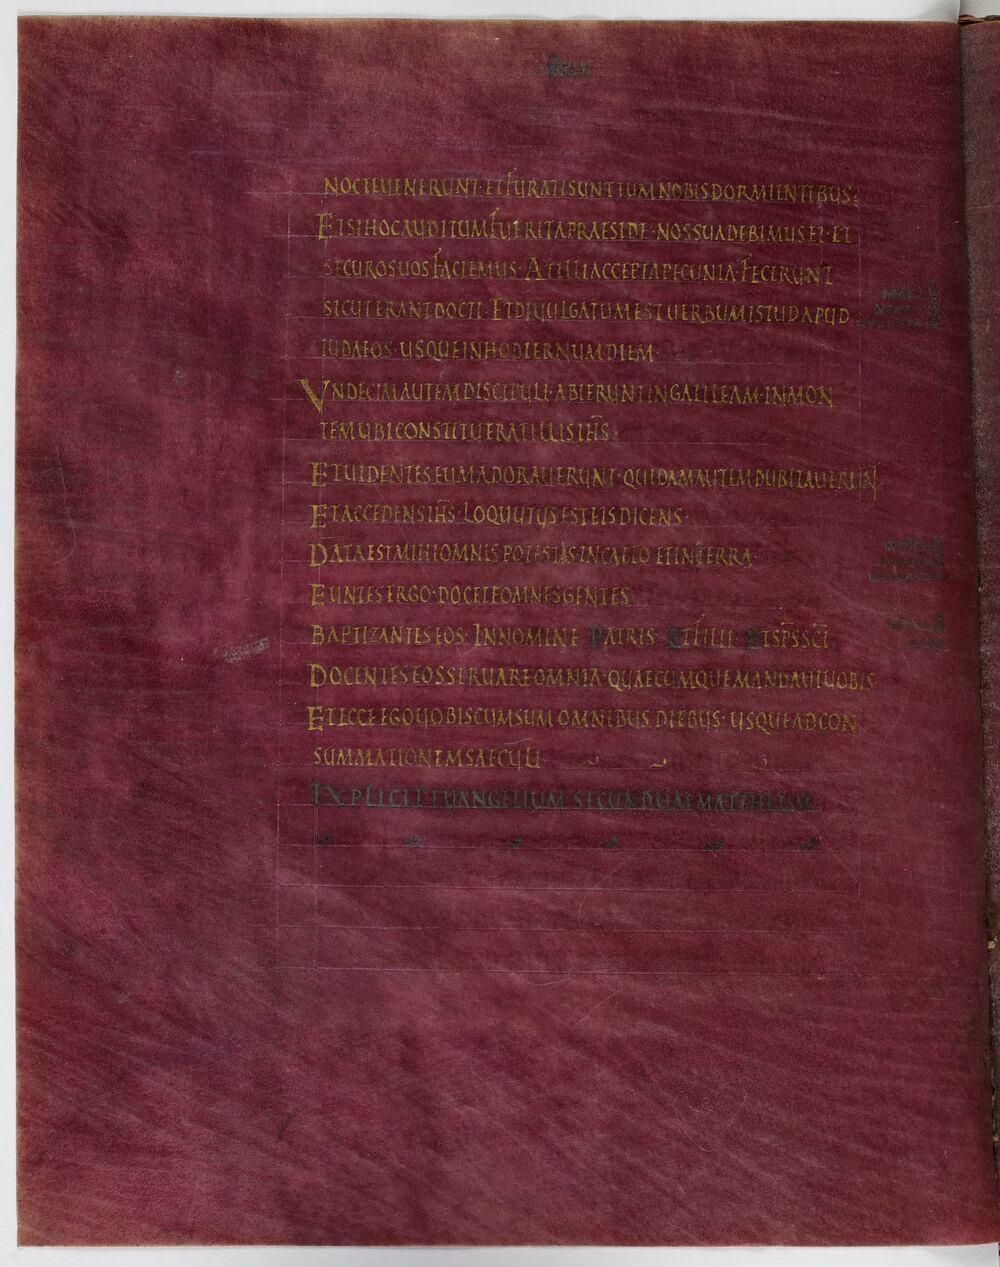 NOCTEUENERUNT·ETFURATISUNTEUMNOBISDORMIENTIBUS;
ETSIHOCAUDITUMFUERITAPRAESIDE·NOSSUADEBIMUSEI·ET
SECUROSUOSFACIEMUS·ATILLIACCEPTAPECUNIA·FECERUNT
SICUTERANTDOCTI·ETDIUULGATUMESTUERBUMISTUDAPUD
IUDAEOS·USQUEINHODIERNUMDIEM·
VNDECIMAUTEMDISCIPULI·ABIERUNTINGALILEAM·INMON
TEMUBICONSTITUERATILLISIH̅S;
ETUIDENTESEUMADORAUERUNT·QUIDAMAUTEMDUBITAUERUN̅
ETACCEDENSIH̅S·LOQUUTUSESTEISDICENS·
DATAESTMIHIOMNISPOTESTASINCAELO ETINTERRA·
EUNTESERGO·DOCETEOMNESGENTES
BAPTIZANTESEOS·INNOMINE PATRIS·ETFILII·ETSP̅SSC̅I
DOCENTESEOSSERUAREOMNIA·QUAECUMQUEMANDAUIUOBIS
ETECCEEGOUOBISCUMSUMOMNIBUS DIEBUS·USQUEADCON
SUMMATIONEMSAECULI·
EXPLICIT EUANGELIUM SECUNDUM MATTHEUM